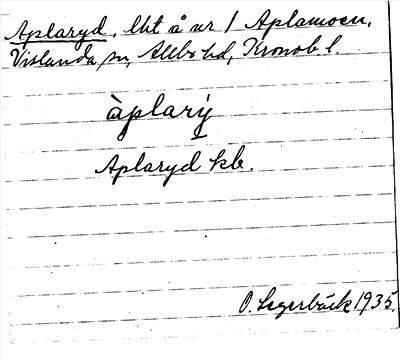 Aplaryd. lht å nr 1 Aplamoen,
Vislanda sn, Allbo hd, Kronob l.
àplarÿ
Aplaryd kb.
O. Lagerbäck 1935.